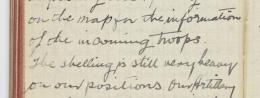 on the map for the information
of the incoming troops.
The shelling is still very heavy
on our positions. Our Artillery